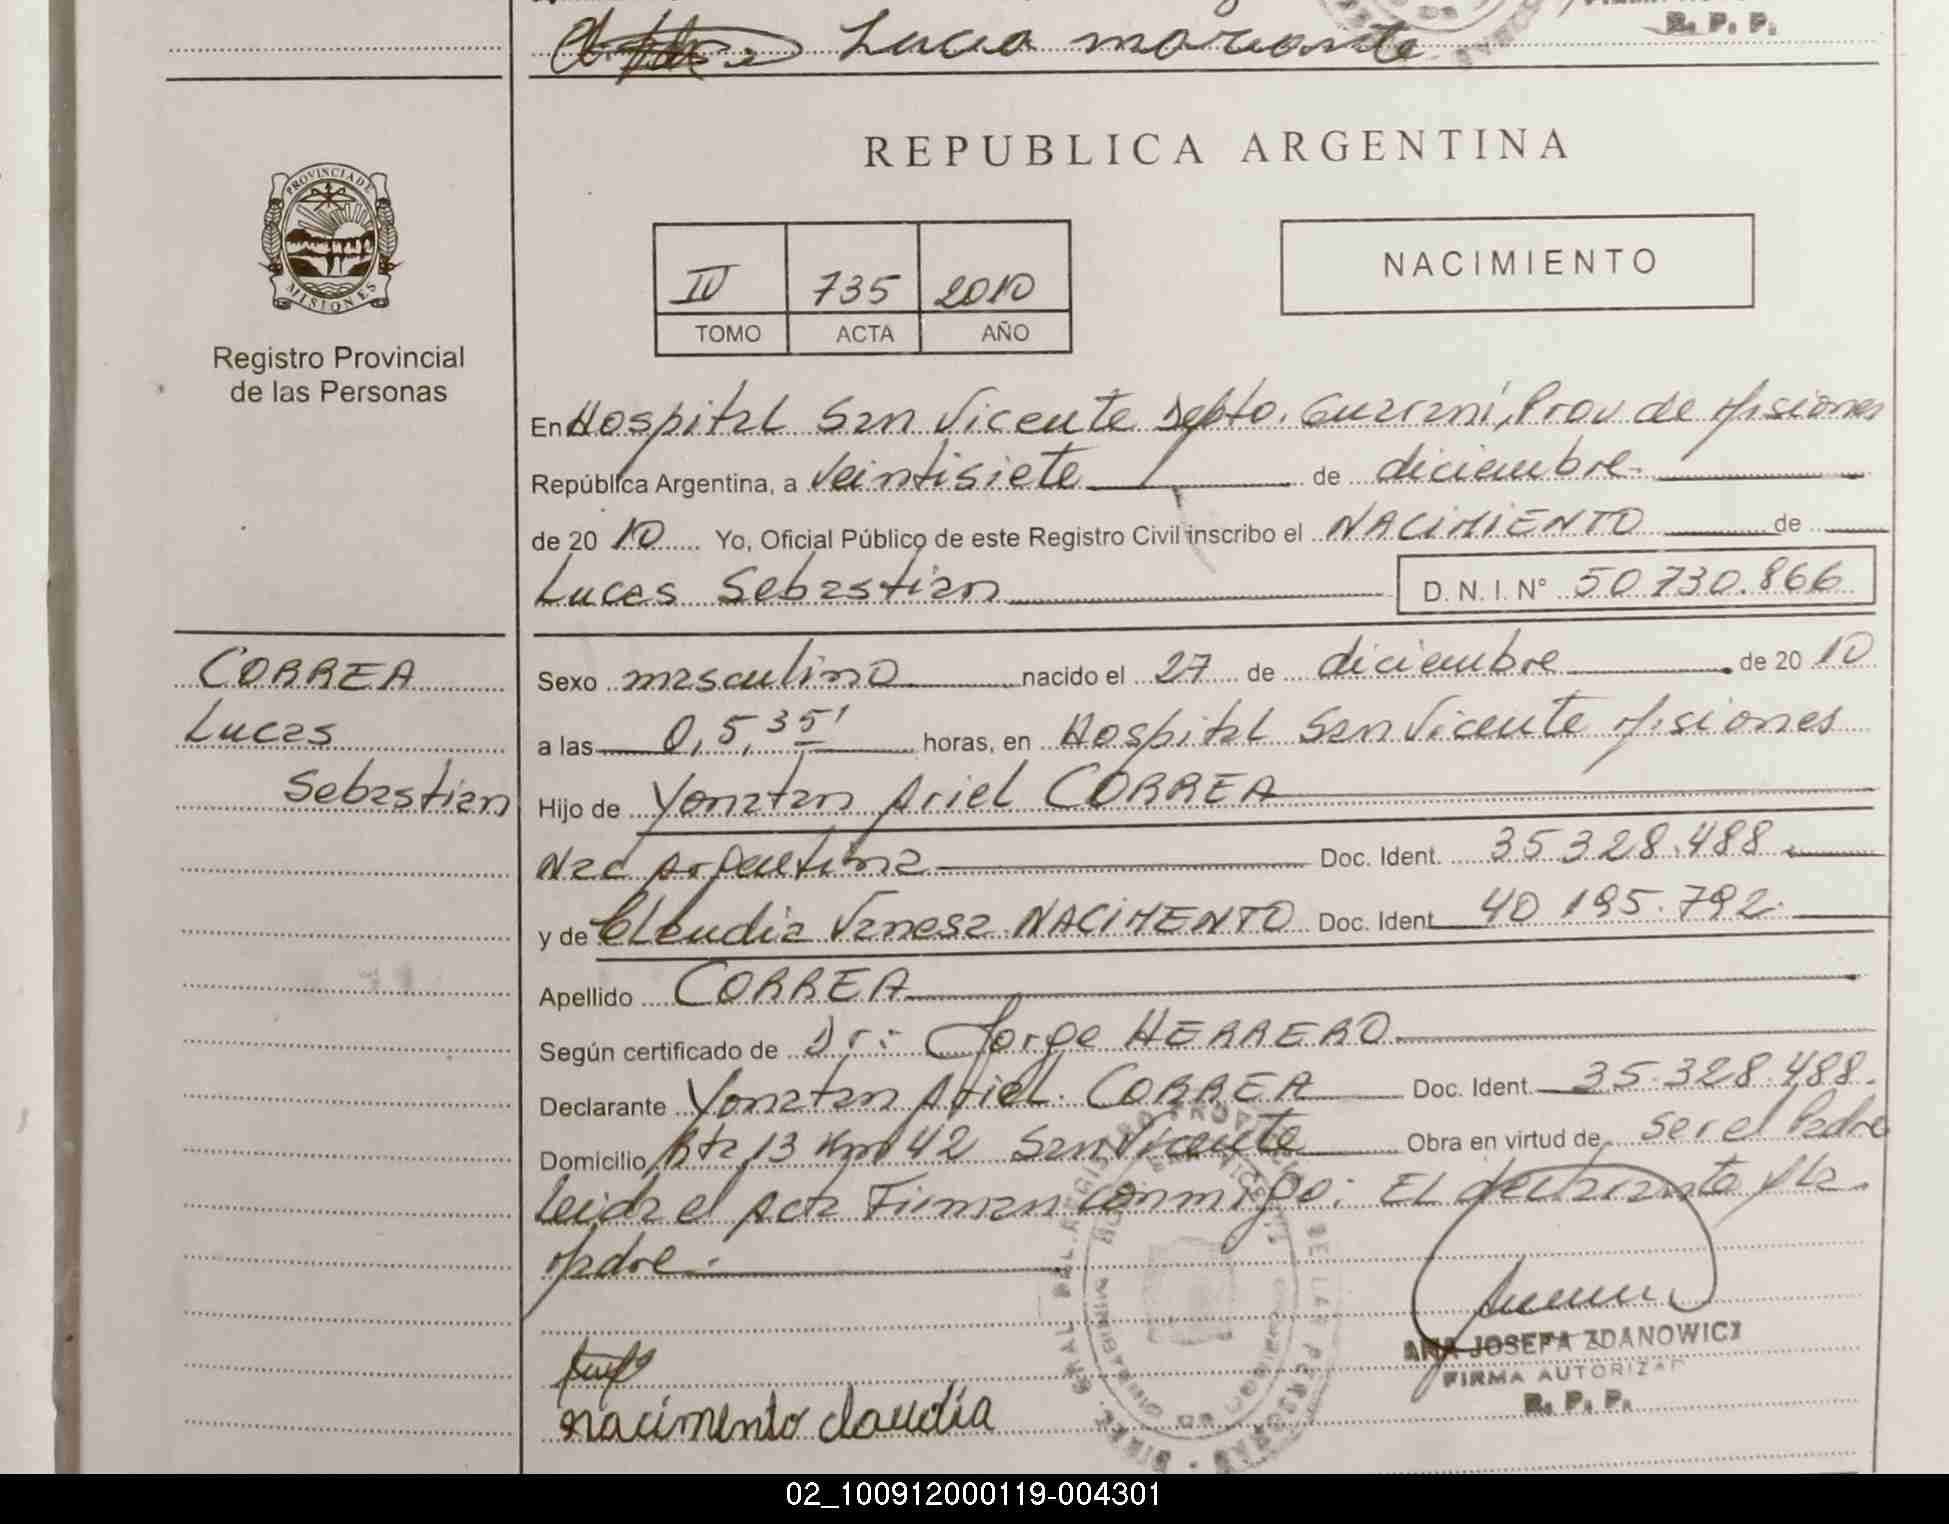 Lucia
B. P. P.
REPUBLICA ARGENTINA
PROVINCIA DE
MISIONES
IV 735 2010
TOMO ACTA AÑO
NACIMIENTO
Registro Provincial
de las Personas
En Hospital San Vicente Depto. Guaraní, Prov de Misiones
República Argentina, a veintisiete de diciembre
de 2010 Yo, Oficial Público de este Registro Civil inscribo el NACIMIENTO de
Lucas Sebastian D. N. I. N° 50.730.866
CORREA
Lucas
Sebastian
Sexo masculino nacido el 27 de diciembre de 2010
a las 0,5,35' horas, en Hospital San Vicente Misiones
Hijo de Yonatan Ariel CORREA
Nac Argentina Doc. Ident. 35.328.488
y de Claudia Vanesa NACIMENTO Doc. Ident. 40 195.792
Apellido CORREA
Según certificado de Dr: Jorge HERRERO
Declarante Yonatan Ariel CORREA Doc. Ident. 35.328.488.
Domicilio Rta 13 Km 42 San Vicente Obra en virtud de ser el Padre
leida el Acta Firman conmigo: El declarante y la
Madre
nacimento claudia
ANA JOSEFA ZDANOWICZ
FIRMA AUTORIZAD
R. P. P.
02_100912000119-004301